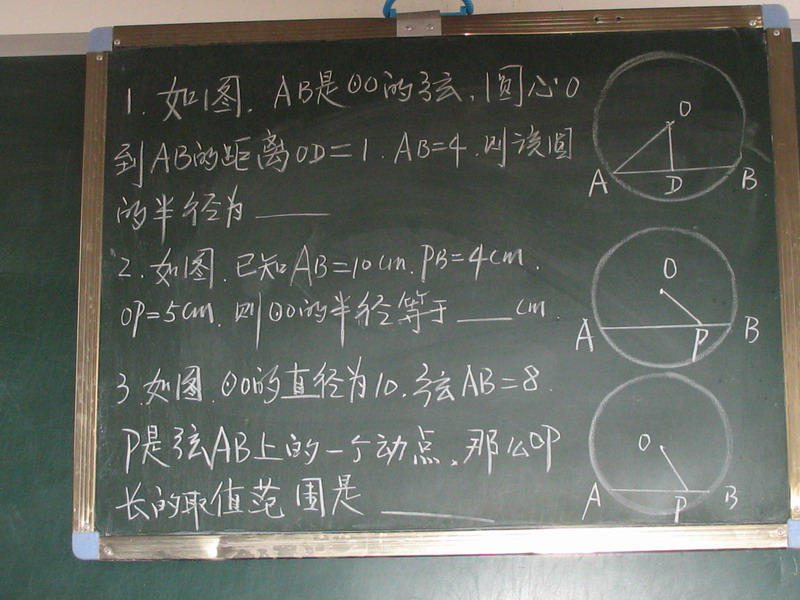 1. 如图, AB是⊙O的弦, 圆心O
到AB的距离OD=1, AB=4, 则该圆
的半径为____
2. 如图, 已知AB=10cm, PB=4cm,
OP=5cm, 则⊙O的半径等于____cm.
3. 如图, ⊙O的直径为10, 弦AB=8.
P是弦AB上的一个动点, 那么OP
长的取值范围是____
O
A
D
B
O
A
P
B
O
A
P
B